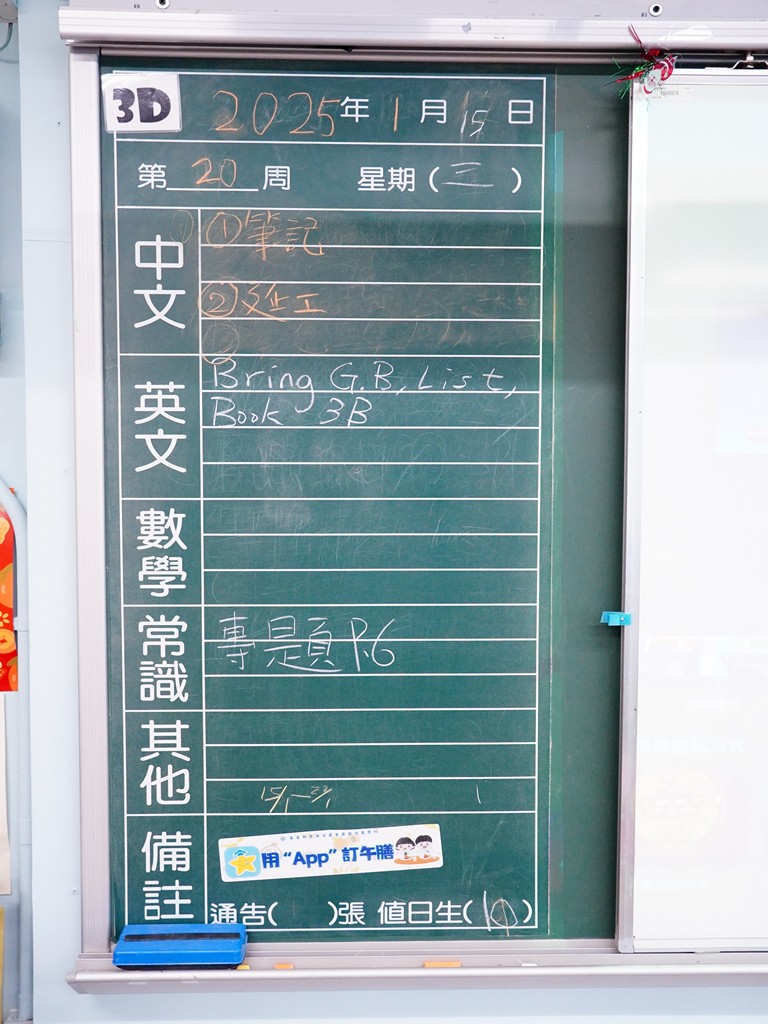 3D
2025年1月15日
第20周 星期(三)
中文
①筆記
②
英文
Bring G.B, List,
Book 3B
數學
常識
專題 P.6
其他
15/1-22/1
備註
用“App”訂午膳
通告( )張 值日生( )